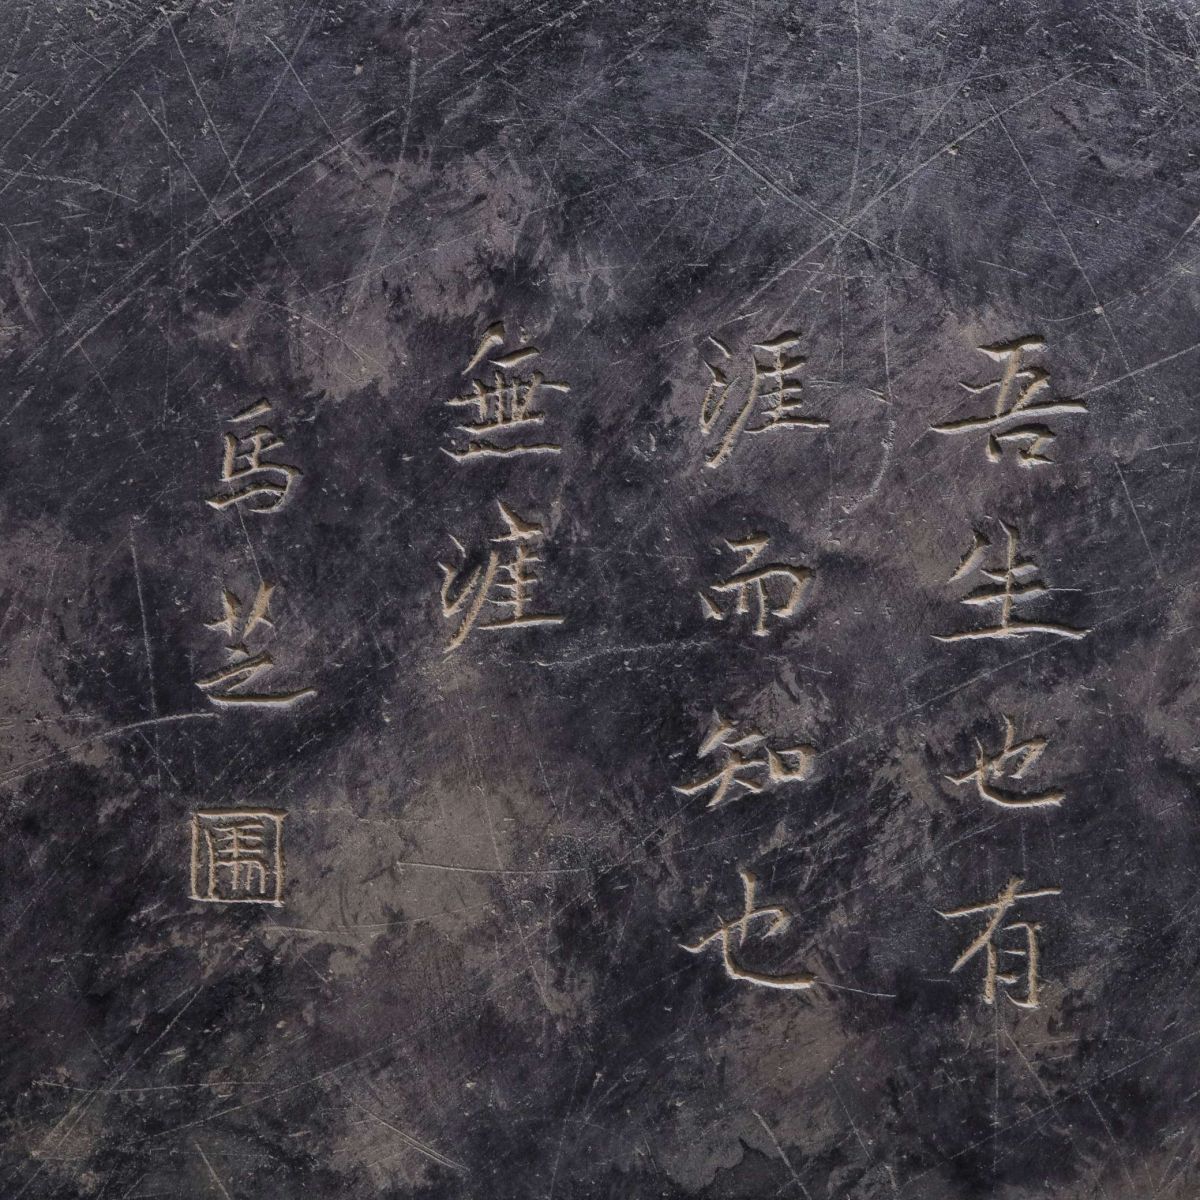 吾生也有
涯而知也
無涯
馬芝